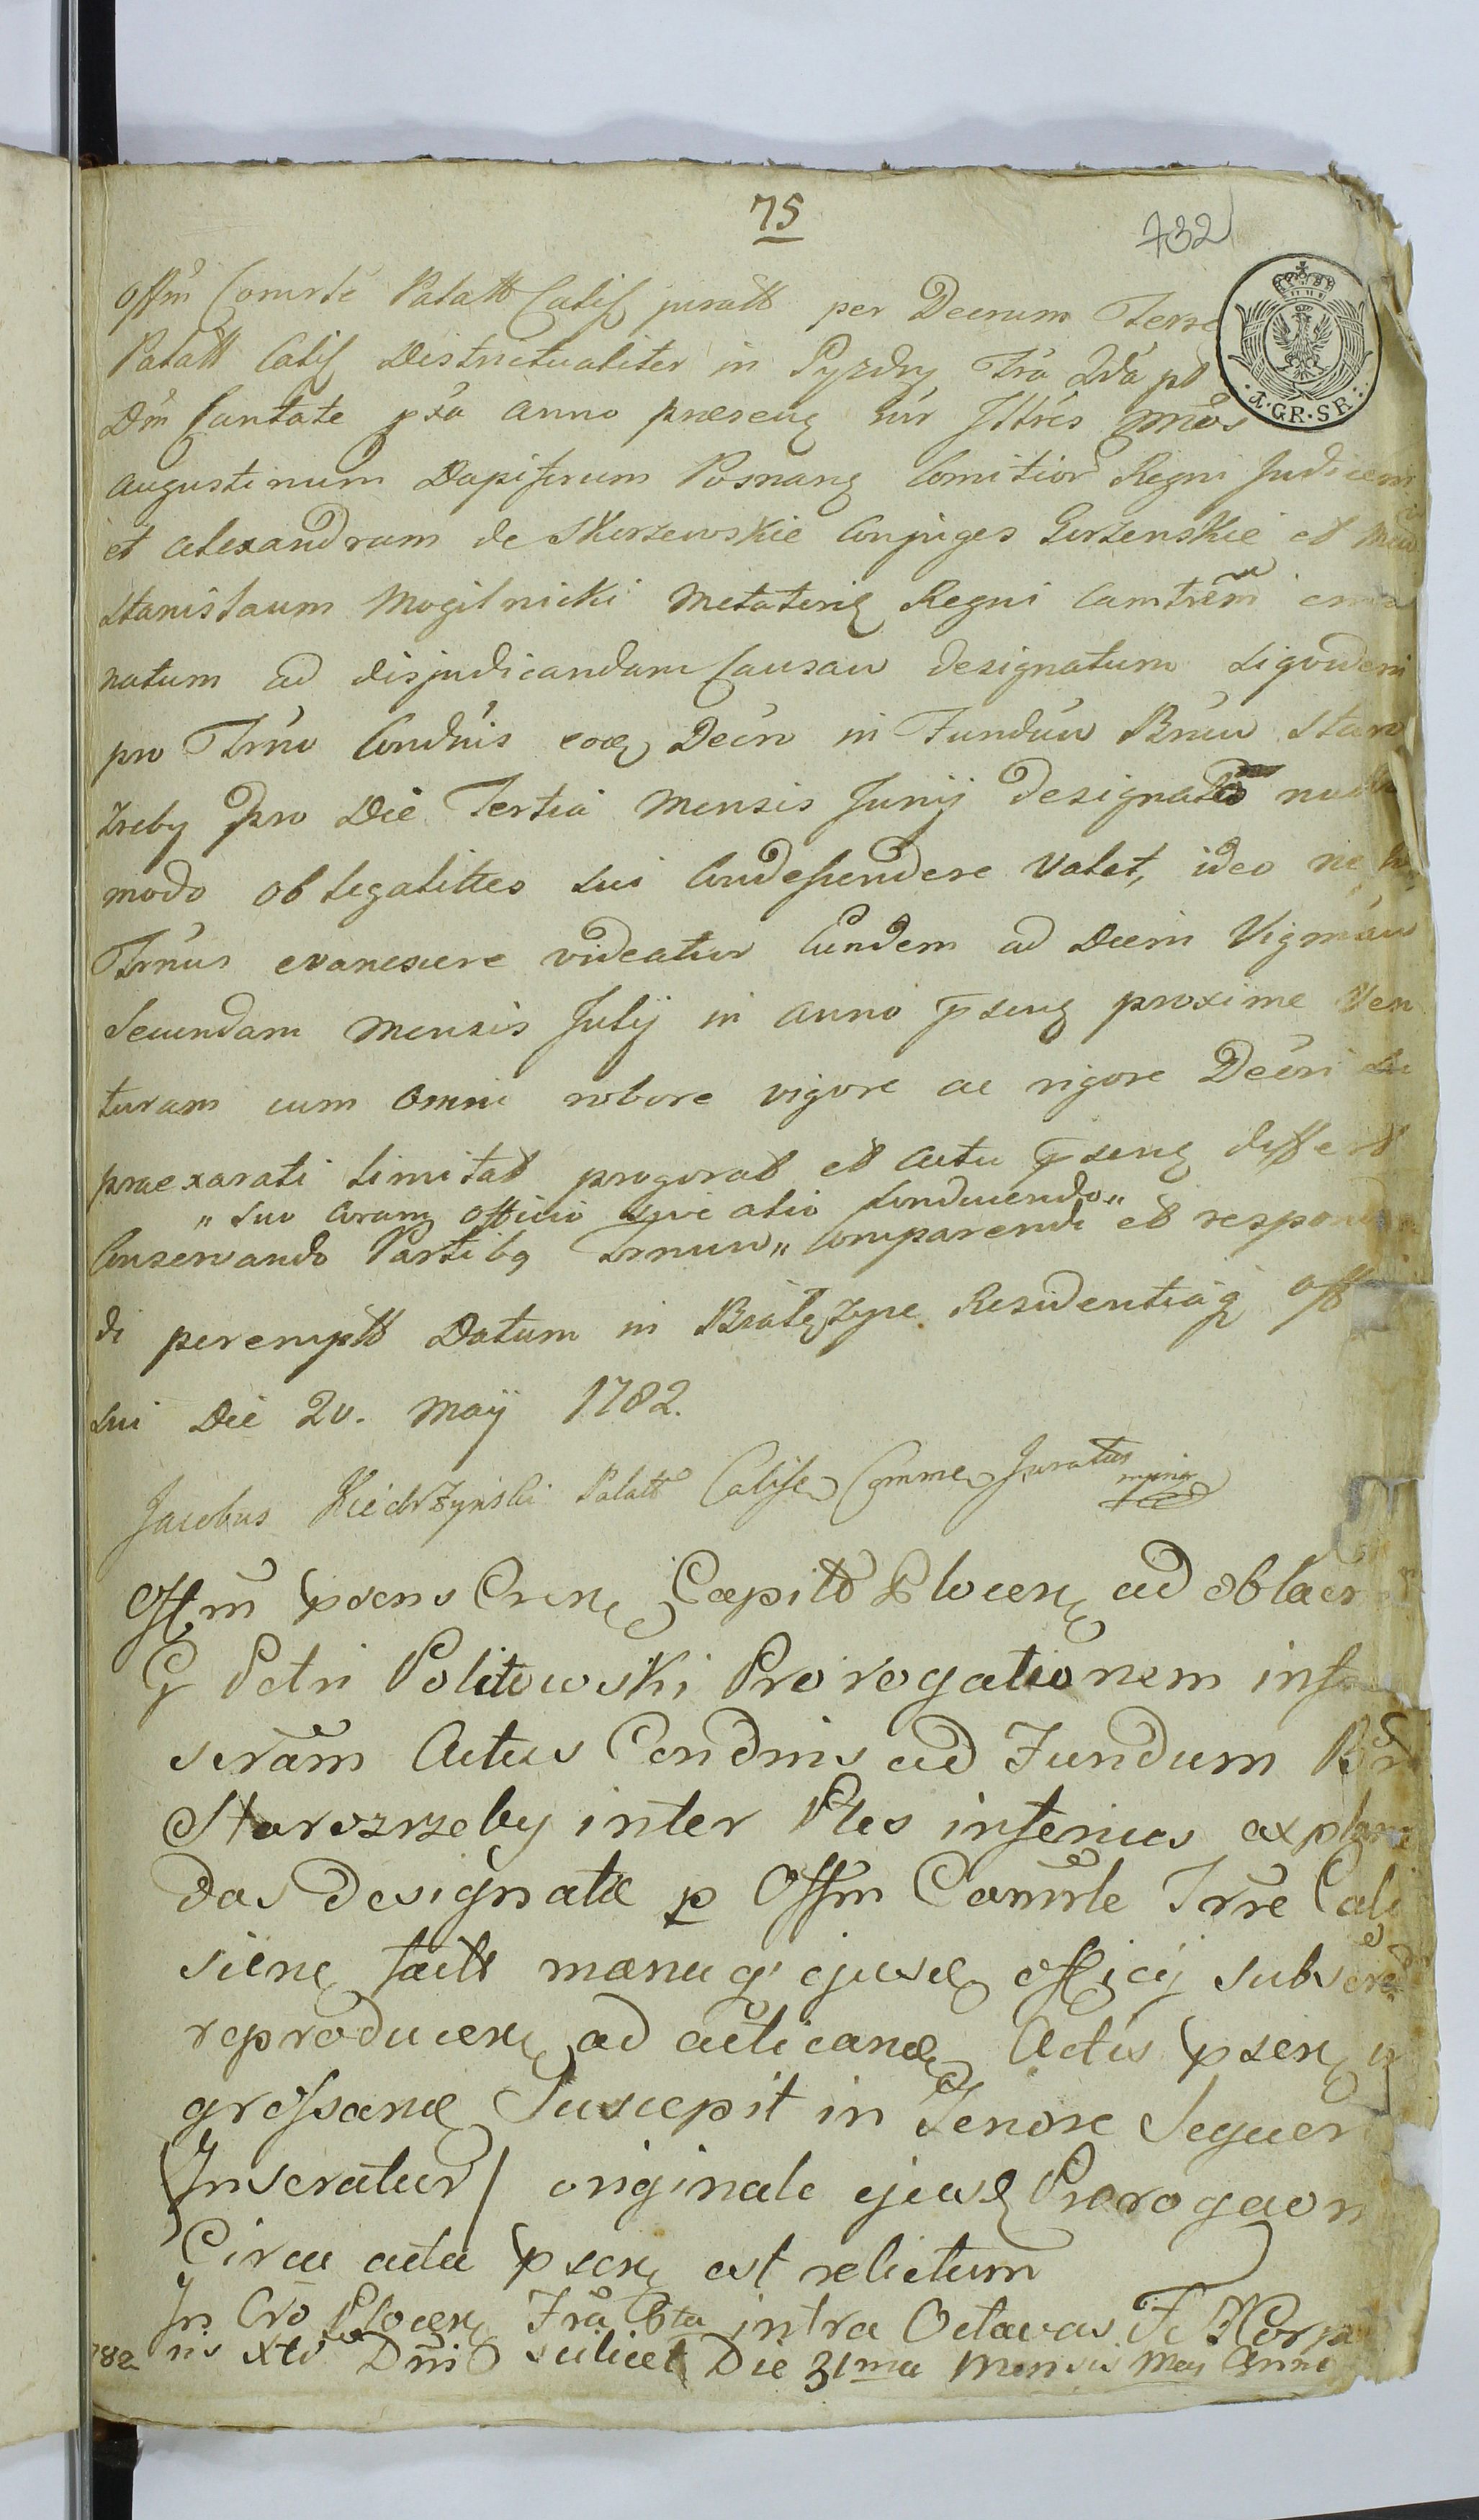 75
732
Offm Comrle Palatt Calis juratt per Decrum Terre
1.GR.SR.
Palatt Calis Districtualiter in Pyzdry Fra 2da pt
Dm Cantate pxa anno præsenq Inr Illres Mcos
Augustinum Dapiferum Posnanq Comitior Regni Judicem
et Alexandram de Skorzewskie Conjuges Gorzenskie et
Stanislaum Mogilnicki Metatenq Regni Camtrem ema
natum ad disjudicandam Causam designatum
pro Trno Condnis Decrr in Fundum Bnrum Staro
zreby pro Die Tertia Mensis Junij designato
modo ob legalittes sui Condescendere Valet, ideo ne
Trnus evanescere videatur Eundem ad Diem Vigmam
Secundam Mensis Julij in Anno psenq proxime Ven
turam cum Omni robore vigore ac rigore Decri sui
praexarati limitat progorat et Actu psenq differt
" suo Coram Officio sive alio Conducendo "
Conservando Partibq Trnum " Comparendi et respond
di perempt Datum in Residentiaq Off
sui Die 20. Maÿ 1782.
Jacobus Kiedrzynski Palatt Calisen Comme Juratus mpria
Offm psens Crenq Capitt Plocenq ad oblaon
G Petri Politowski Prorogationem infra
scram Actus Condnis ad Fundum Bnr
Starozrzeby inter Ptes inferius explan
das designatæ p Offm Comrle Trre Cali
sienq factt manuq ejusdq officij subscr
reproducenq ad acticandq Actis psenq in
grossandq Suscepit in Tenore Sequen
(Inseratur) originale ejusdq Prorogaon
Circa acta psenq est relictum
In Cro Plocenq Fra 6ta intra Octavas F. Corpo
ris Xti Dni scilicet Die 31ma Mensis Maij Anno
782